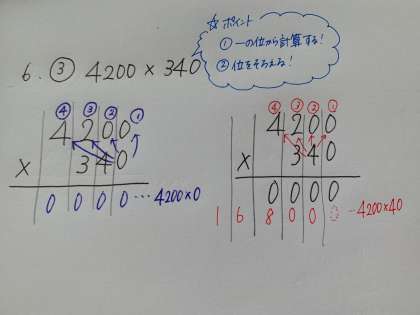 ☆ポイント
① 一の位から計算する!
② 位をそろえる!
6. ③ 4200 × 340
④ ③ ② ①
4 2 0 0
× 3 4 0
0 0 0 0 … 4200×0
④ ③ ② ①
4 2 0 0
× 3 4 0
0 0 0 0
1 6 8 0 0 0 … 4200×40